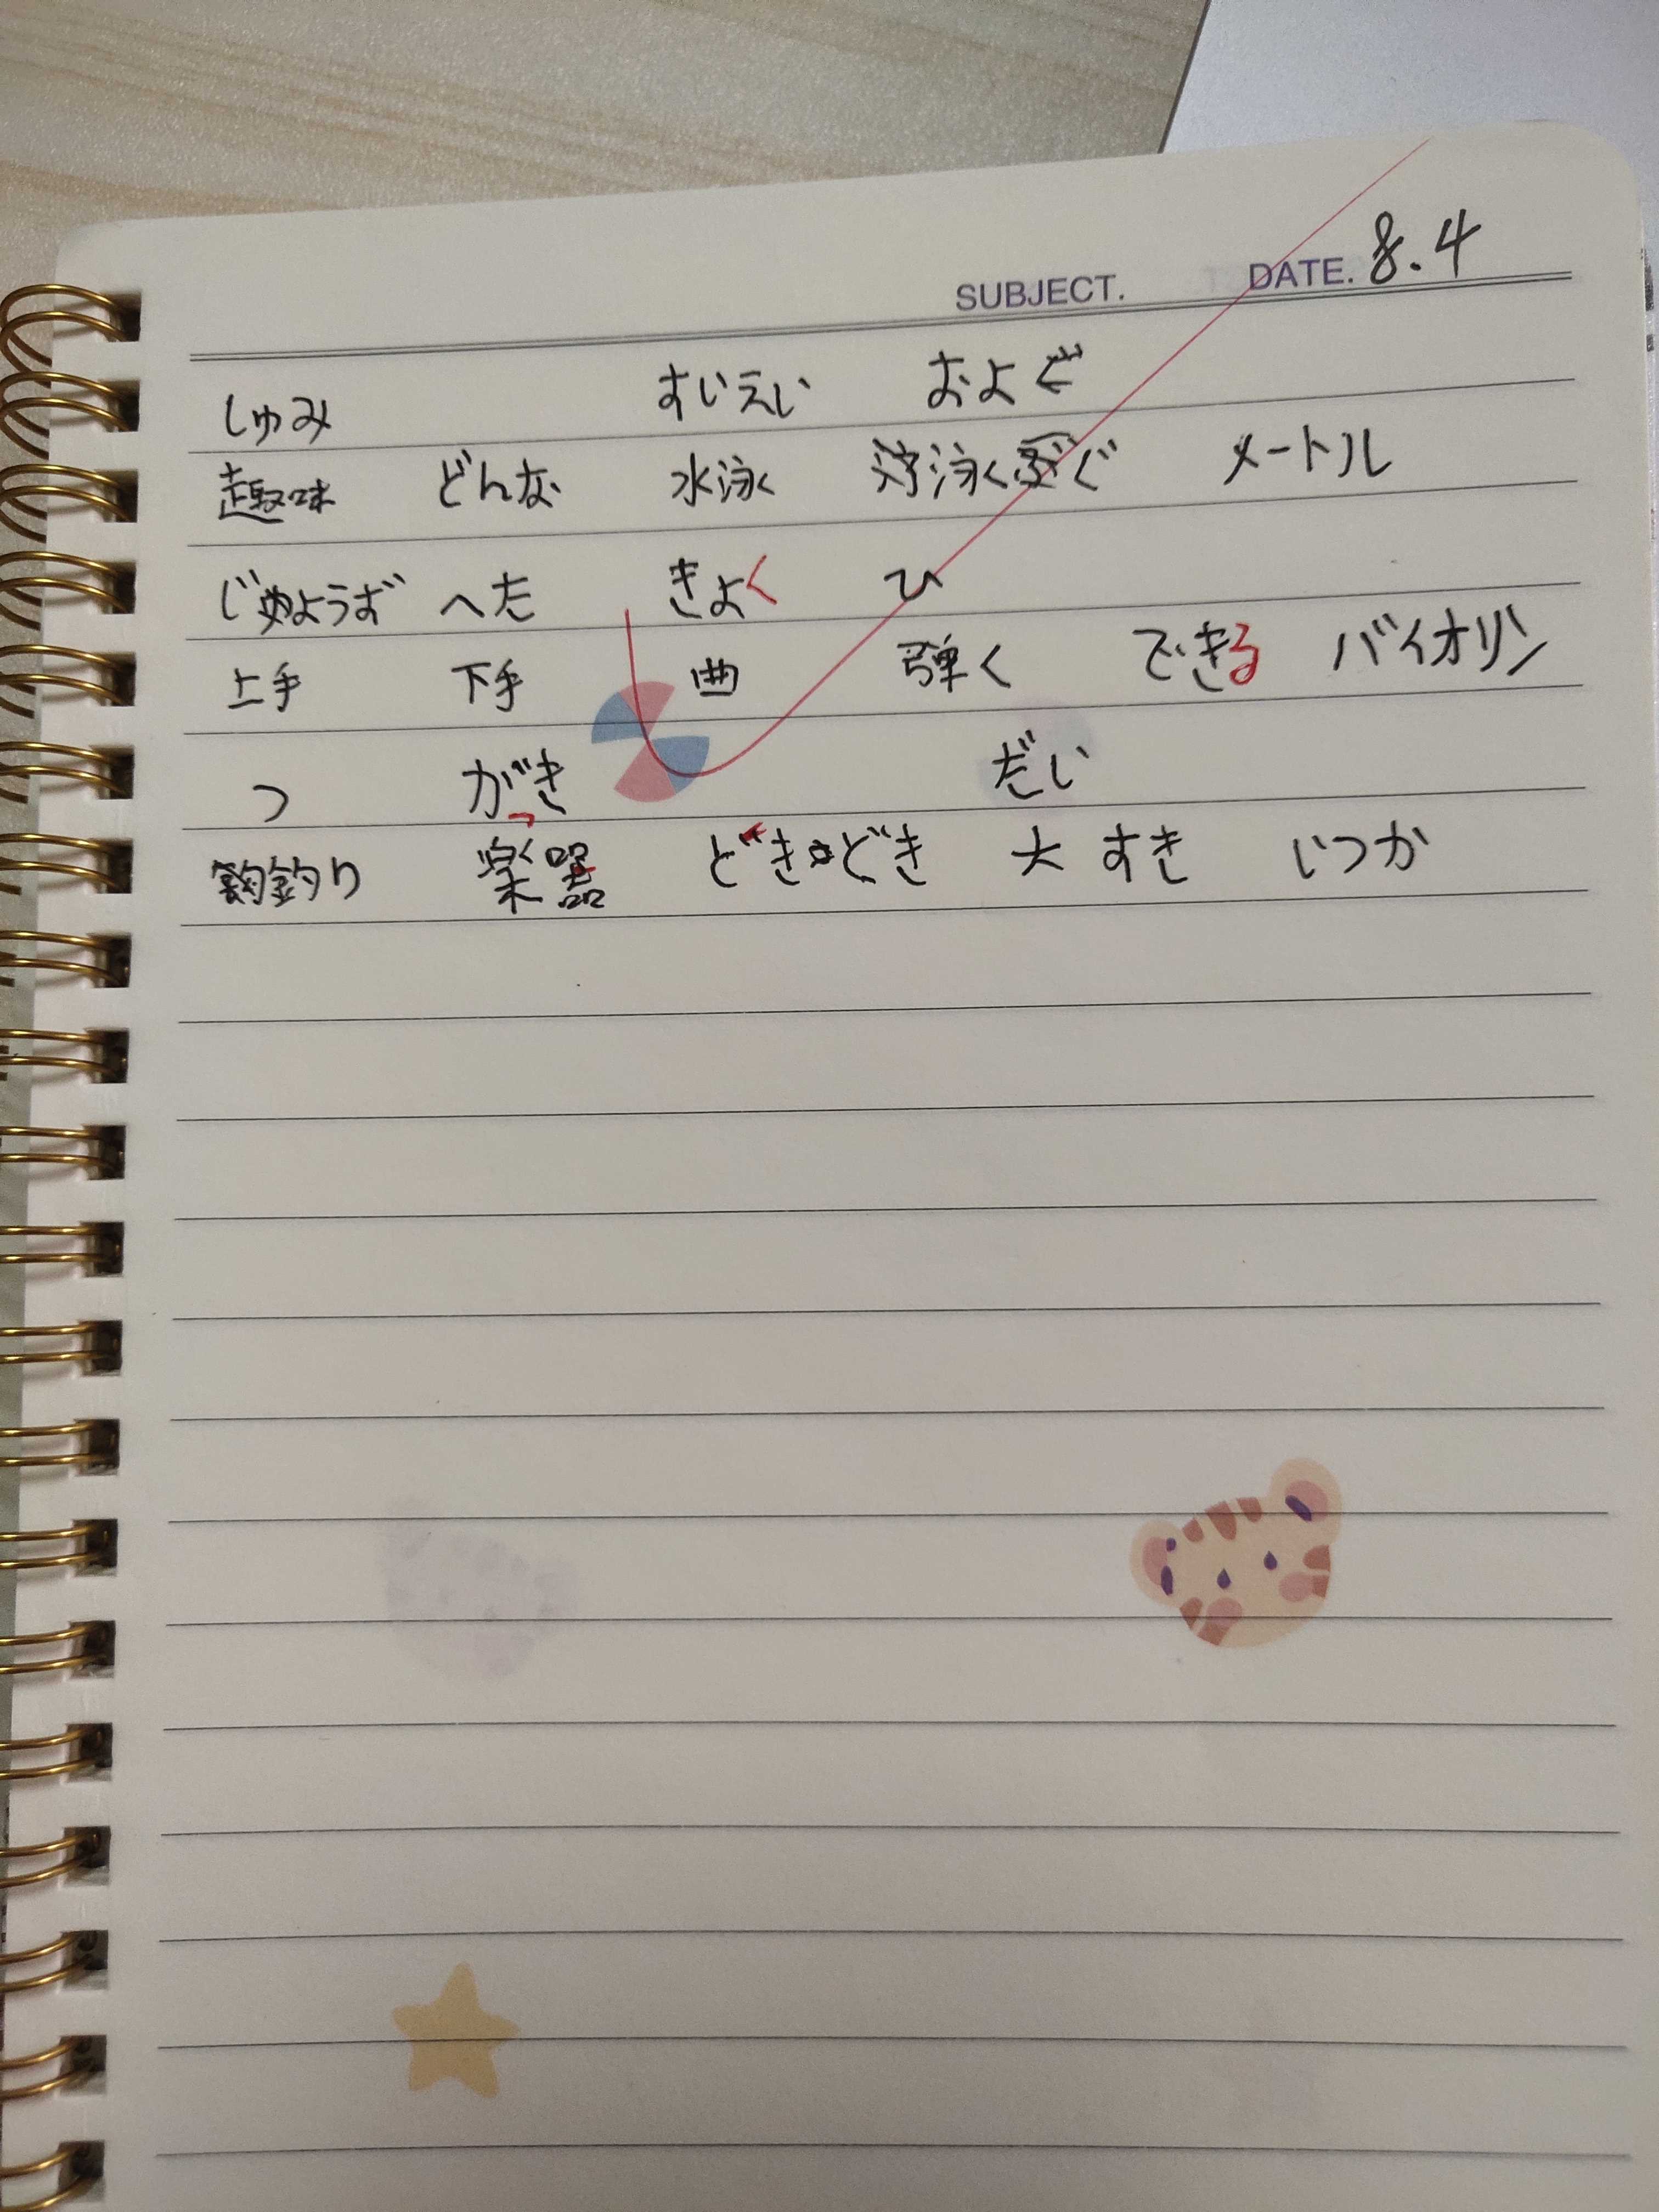 SUBJECT. DATE. 8.4
しゅみ すいえい およぐ
趣味 どんな 水泳 泳ぐ メートル
じょうず へた きょく ひ
上手 下手 曲 弾く できる バイオリン
つ がっき だい
釣り 楽器 どきどき 大 すき いつか